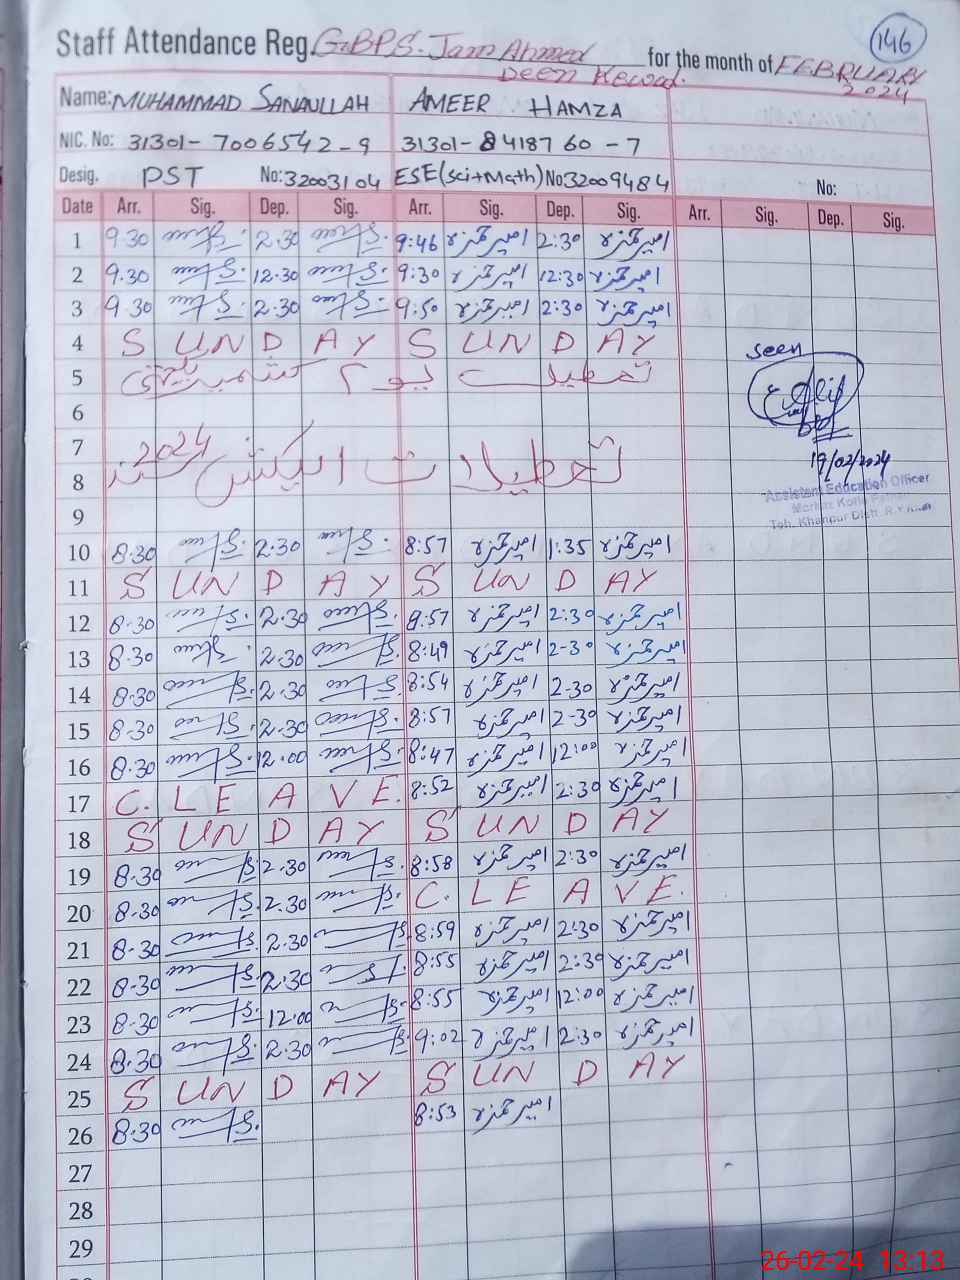 146
Staff Attendance Reg. G.B.P.S. Jam Ahmed Deen Kewad. for the month of FEBRUARY 2024
Name: MUHAMMAD SANAULLAH AMEER HAMZA
NIC. No: 31301-7006542-9 31301-8418760-7
Desig. PST No: 32003104 ESE(Sci+Math) No: 32009484 No:
Date Arr. Sig. Dep. Sig. Arr. Sig. Dep. Sig. Arr. Sig. Dep. Sig.
1 9.30 2.30 9:46 امیر حمزہ 2:30 امیر حمزہ
2 9.30 12.30 9:30 امیر حمزہ 12:30 امیر حمزہ
3 9.30 2.30 9:50 امیر حمزہ 2:30 امیر حمزہ
4 S UN D AY S UN D AY
seen
5 تعطیل یوم کشمیر
6
7
8 تعطیلات الیکشن 2024
19/02/2024
Assistant Education Officer
Markaz Kotla
Teh. Khanpur Distt. R.Y.Khan
9
10 8.30 2.30 8:57 امیر حمزہ 1:35 امیر حمزہ
11 S UN D AY S UN D AY
12 8.30 2.30 8:57 امیر حمزہ 2:30 امیر حمزہ
13 8.30 2.30 8:49 امیر حمزہ 2-30 امیر حمزہ
14 8.30 2.30 8:54 امیر حمزہ 2-30 امیر حمزہ
15 8.30 2.30 8:57 امیر حمزہ 2-30 امیر حمزہ
16 8.30 12.00 8:47 امیر حمزہ 12:00 امیر حمزہ
17 C. L E A V E. 8:52 امیر حمزہ 2:30 امیر حمزہ
18 S UN D AY S UN D AY
19 8.30 2.30 8:58 امیر حمزہ 2:30 امیر حمزہ
20 8.30 2.30 C. L E A V E.
21 8.30 2.30 8:59 امیر حمزہ 2:30 امیر حمزہ
22 8.30 2.30 8:55 امیر حمزہ 2:30 امیر حمزہ
23 8.30 12.00 8:55 امیر حمزہ 12:00 امیر حمزہ
24 8.30 2.30 9:02 امیر حمزہ 2:30 امیر حمزہ
25 S UN D AY S UN D AY
26 8.30 8:53 امیر حمزہ
27
28
29
26-02-24 13:13